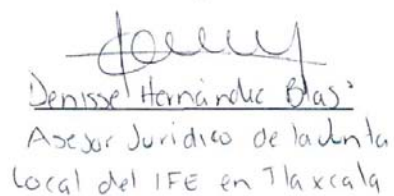 Denisse Hernández Blas
Asesor Jurídico de la Junta
Local del IFE en Tlaxcala